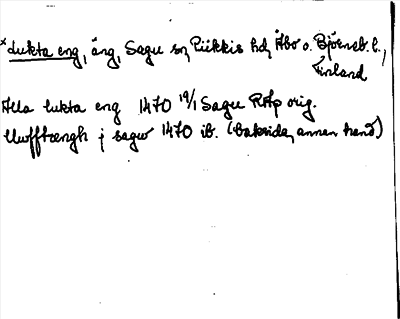 *Lukta eng, äng, Sagu sn, Piikkis hd, Åbo o. Björneb. l.,
Finland
Alla lukta eng 1470 19/1 Sagu RAp orig.
j sagw 1470 ib. (baksida, annan hand)